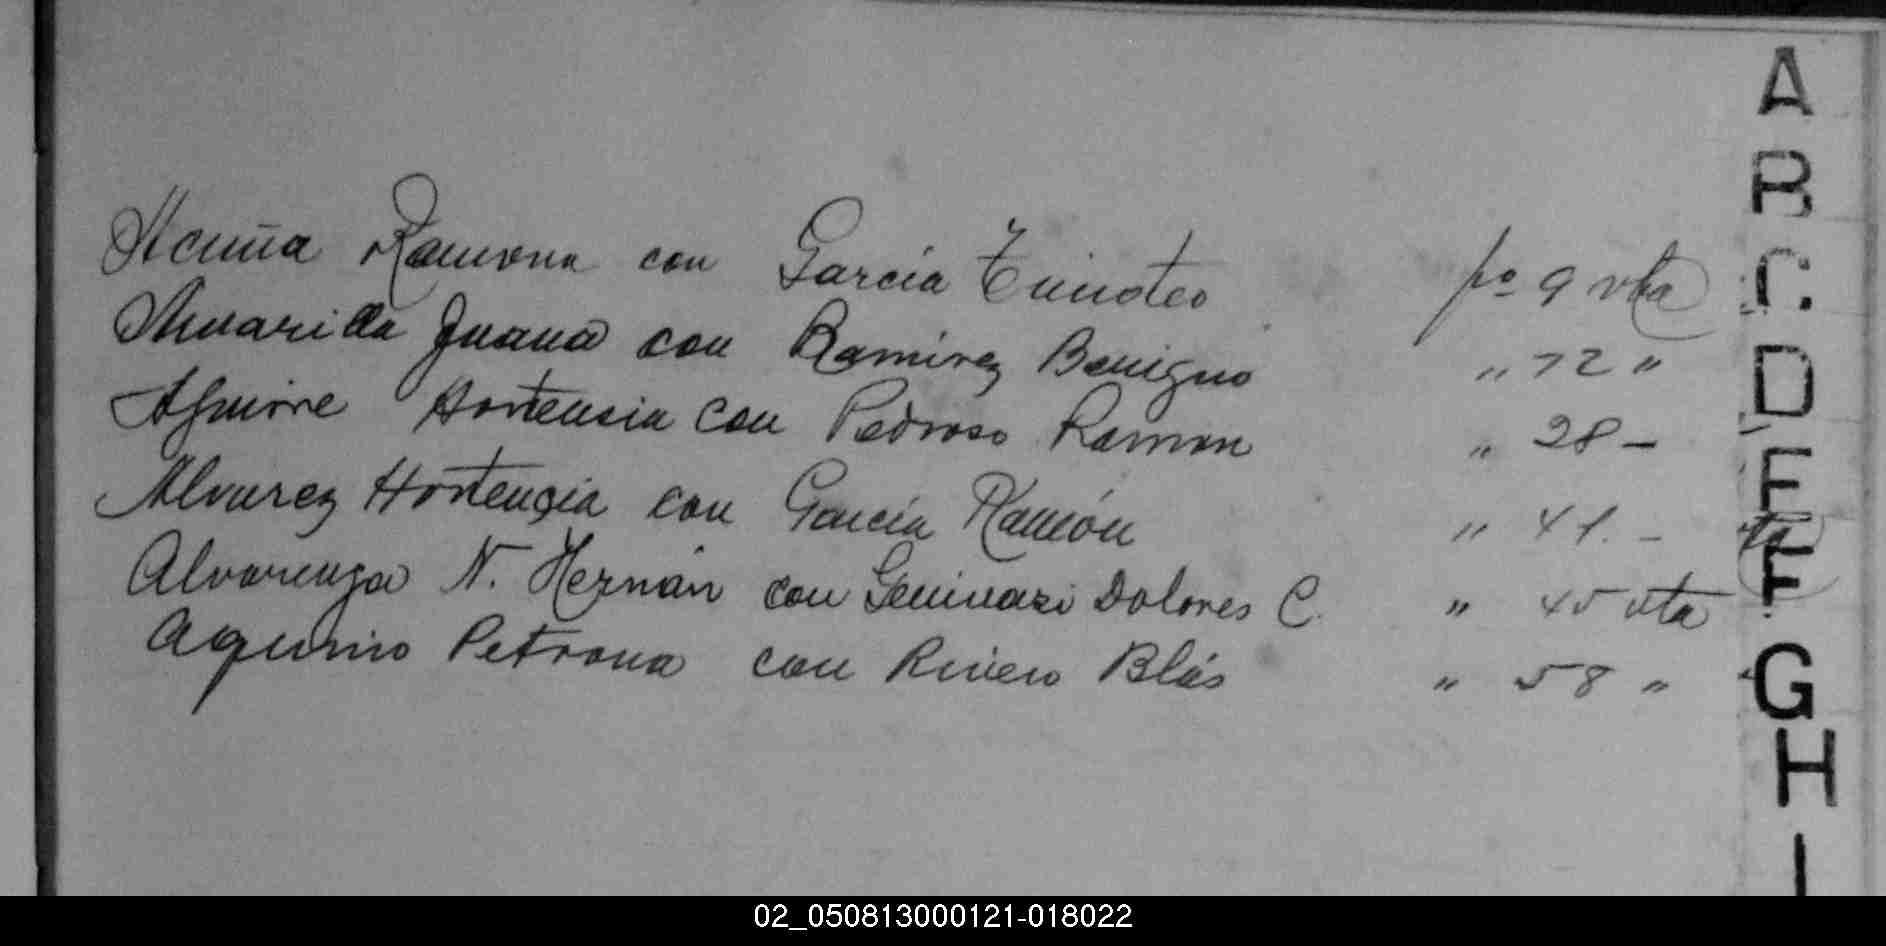 Acuña Ramona con García Timoteo fo 9 vta
Amarilla Juana con Ramirez Benigno " 12 "
Aguirre Hortensia con Pedroso Ramon " 28 -
Alvarez Hortensia con García Ramón " 41. - vta
Alvarenga N. Hernán con Dolores C. " 45 vta
Aquino Petrona con Rivero Blás " 58 "
A
B
C
D
E
F
G
H
I
02_050813000121-018022